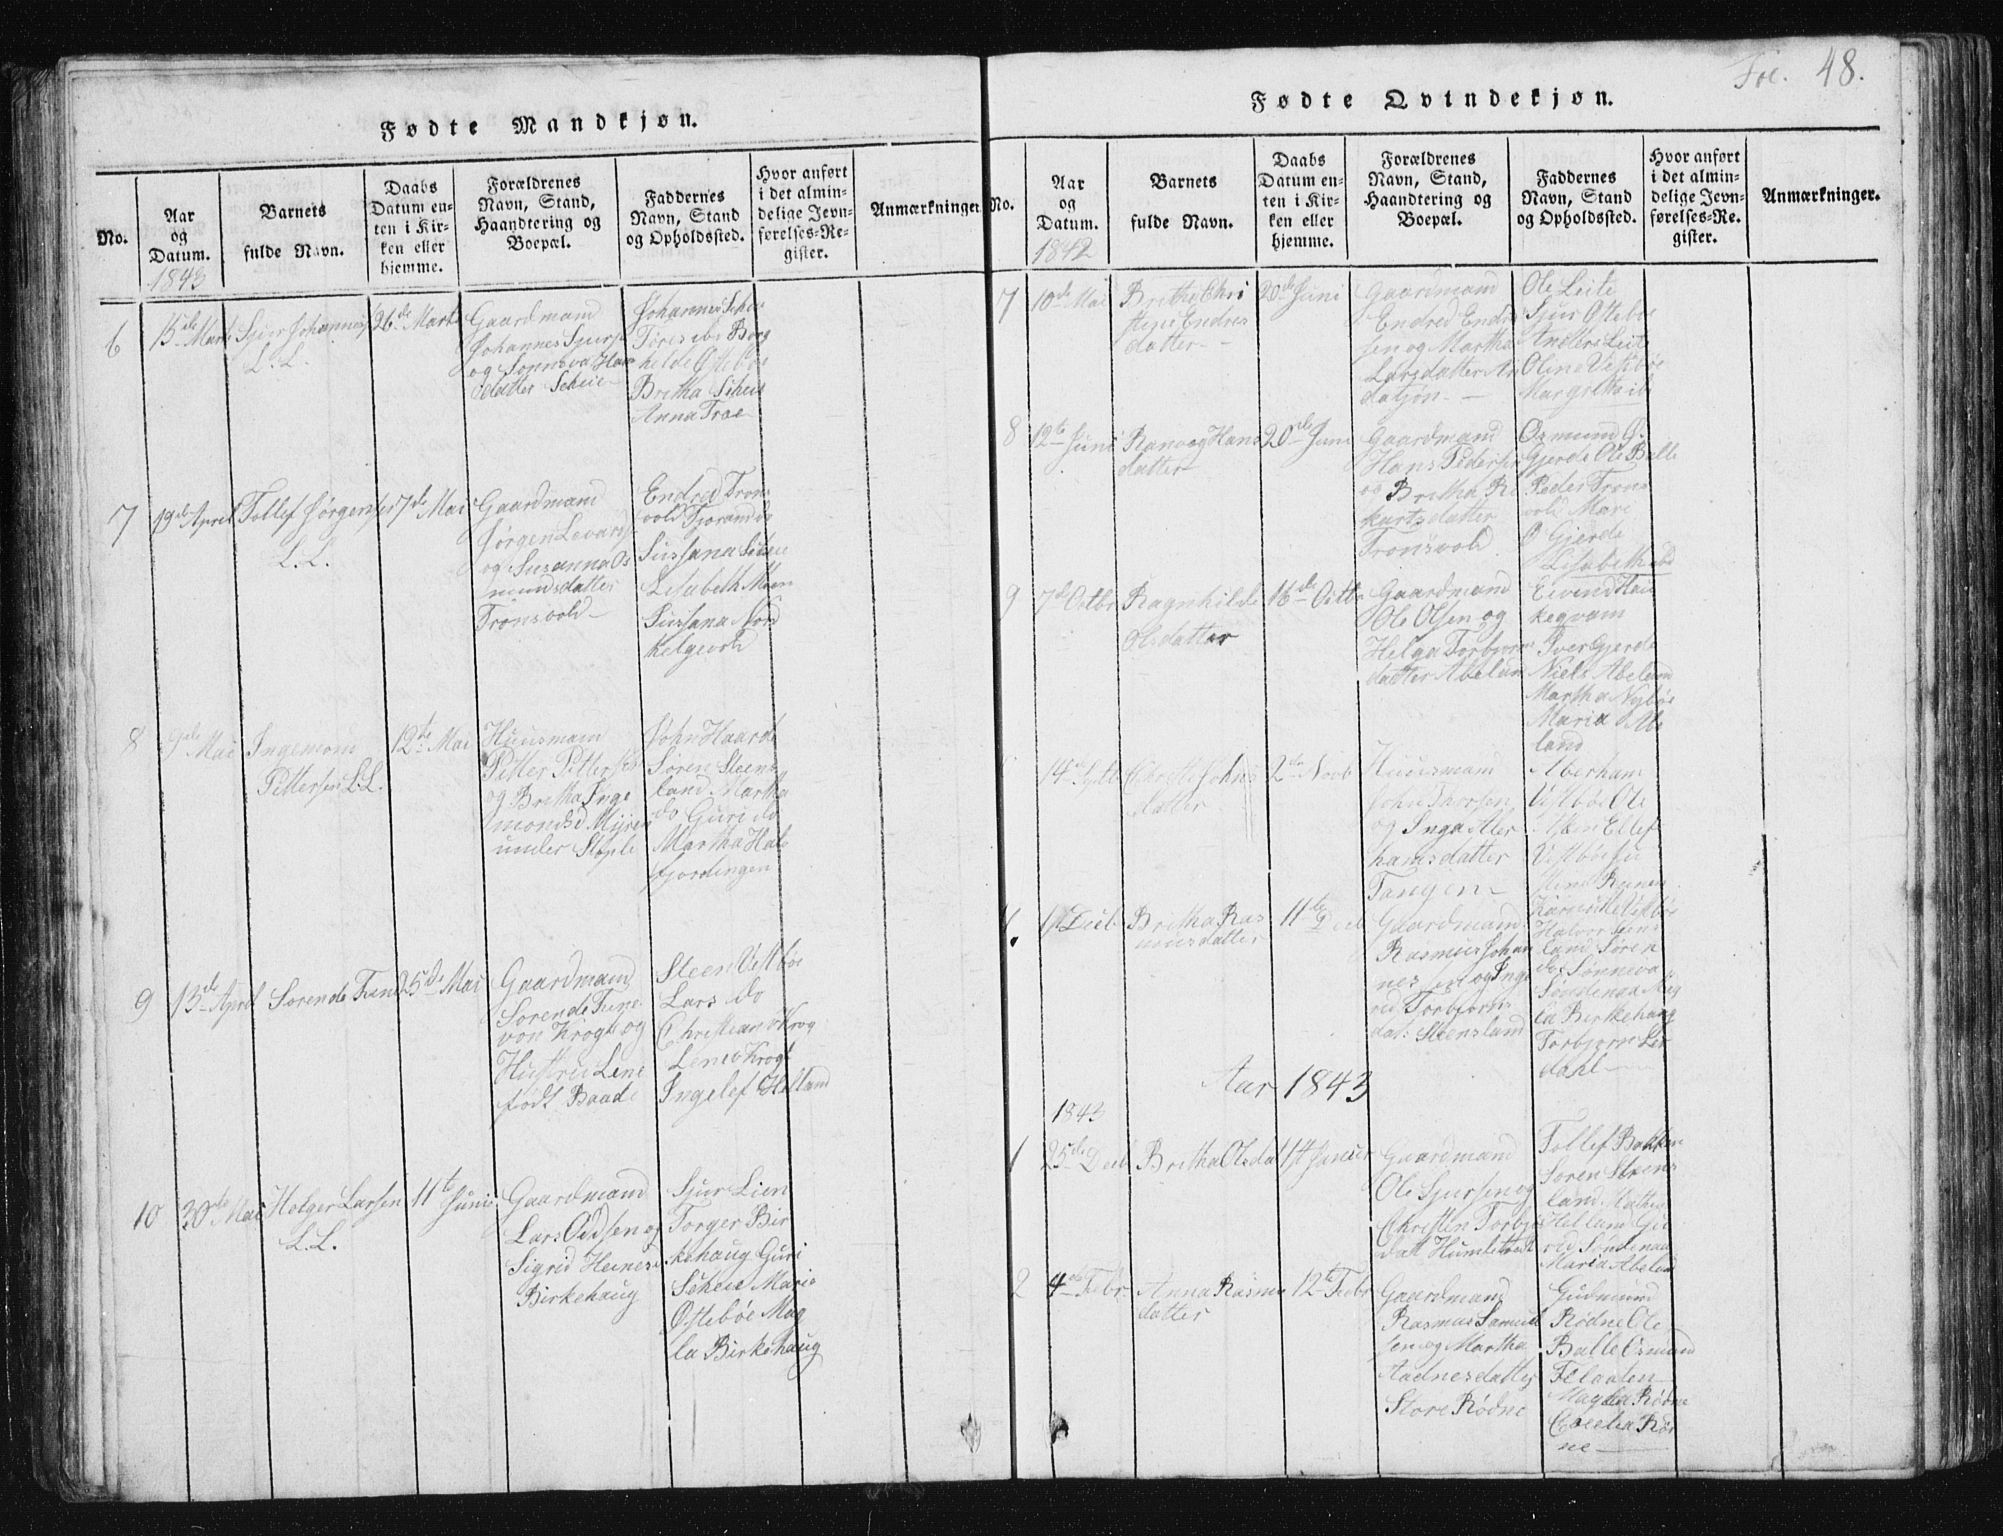 Fol. 48.
Fødte Mandkjøn.
No.
Aar og Datum.
1843
Barnets fulde Navn.
Daabs Datum enten i Kirken eller hjemme.
Forældrenes Navn, Stand, Haandtering og Boepæl.
Faddernes Navn, Stand og Opholdssted.
Hvor anført i det almindelige Jevnførelses-Register.
Anmærkninger
6
15de Marts
Sjur Johannes
L. L.
26de Marts
Gaardmand
Johannes Sjurs
og Sønneva Hans
datter Scheie
Johannes Scheie
Tøres ibs Borg
helde Østebøe
Britha Scheie
Anna Troe
7
19de April
Tollef Jørgensen
L. L.
7de Mai
Gaardmand
Jørgen Levards
og Susanna Os
mundsdatter
Tronsvold
Endred Trons
vold Tjoran do
Sussana Scheie
Lisabeth Moen
Sussana Nord
helgevold
8
Mai
Ingemond
Pettersen L. L.
12te Mai
Huusmand
Petter Petters
og Britha Inge
mondsd Myren
under Støple
John Haarde
Søren Steens
land Martha
do Guri do
Martha Hals
fjordingen
9
13de April
Sorende Fine
25de Mai
Gaardmand
Sorende Fine
von Krogh og
Hustru Lene
født Baade
Steen Vestbøe
Lars do
Christian v Krog
Lene v Krogh
Ingelef Helland
10
30te Mai
Holger Larsen
L. L.
11te Juni
Gaardmand
Lars Oddsen og
Sigrid Heinesd
Birkehaug
Sjur Lien
Torger Bir
kehaug Guri
Scheie Maria
Østebøe Mag
la Birkehaug
Fødte Qvindekjøn.
No.
Aar og Datum.
1842
Barnets fulde Navn.
Daabs Datum enten i Kirken eller hjemme.
Forældrenes Navn, Stand, Haandtering og Boepæl.
Faddernes Navn, Stand og Opholdssted.
Hvor anført i det almindelige Jevnførelses-Register.
Anmærkninger.
7
10de Mai
Brithe Chri
stine Endres
datter
20de Juni
Gaardmand
Endred Endre
sen og Martha
Larsdatter An
datjøn
Ole Leite
Sjur Østebøe
Andbre Leit
Oline Vestbøe
Margrethe ib
8
12te Juni
Ranveg Hans
datter
20de Juni
Gaardmand
Hans Pedersen
og Britha Ri
kartsdatter
Tronsvold
Osmund G.
Gjerde Ole Balle
Peder Trons
vold Mari
G Gjerde
Lisabeth ibd
9
7de Octbr
Ragnhilde
Olsdatter
16de Octbr
Gaardmand
Ole Olsen og
Helga Torbjørns
datter Abeland
Eivend Hau
keqvam
Iver Gjerde
Niels Abeland
Martha Nybøe
Maria Abe
land
14de
Johns
datter
2den Novb
Huusmand
John Thorsen
og Inga Aber
hamsdatter
Tangen
Aberham
Vestbøe Ole
Ellef
Vestbøe
Vestbøe
Decb
Britha Ras
musdatter
11te Decb
Gaardmand
Rasmus Johan
nes sen og Inge
red Torbjørns
dat: Steensland
Halvor Steens
land Søren
do Sønneva
Søndenaa Mag
la Birkehaug
Torbjørn Lei
dahl
Aar 1843
1843
1
25de Decb
Britha Olsdat
1st Januar
Gaardmand
Ole Sjursen og
Christen Torbjø
datt Humlestvedt
Tollef Bakken
Søren Steens
land Mathis
Helland Gu
red Søndenaa
Maria Abeland
2
4de Febr
Anna Rasmus
datter
12te Febr
Gaardmand
Rasmus Samuel
sen og Martha
Aadnesdatter
Store Rødne
Gudmund
Rødne Ole
Balle Osmund
Flaaten
Magla Rødne
Cecelia Rød
ne